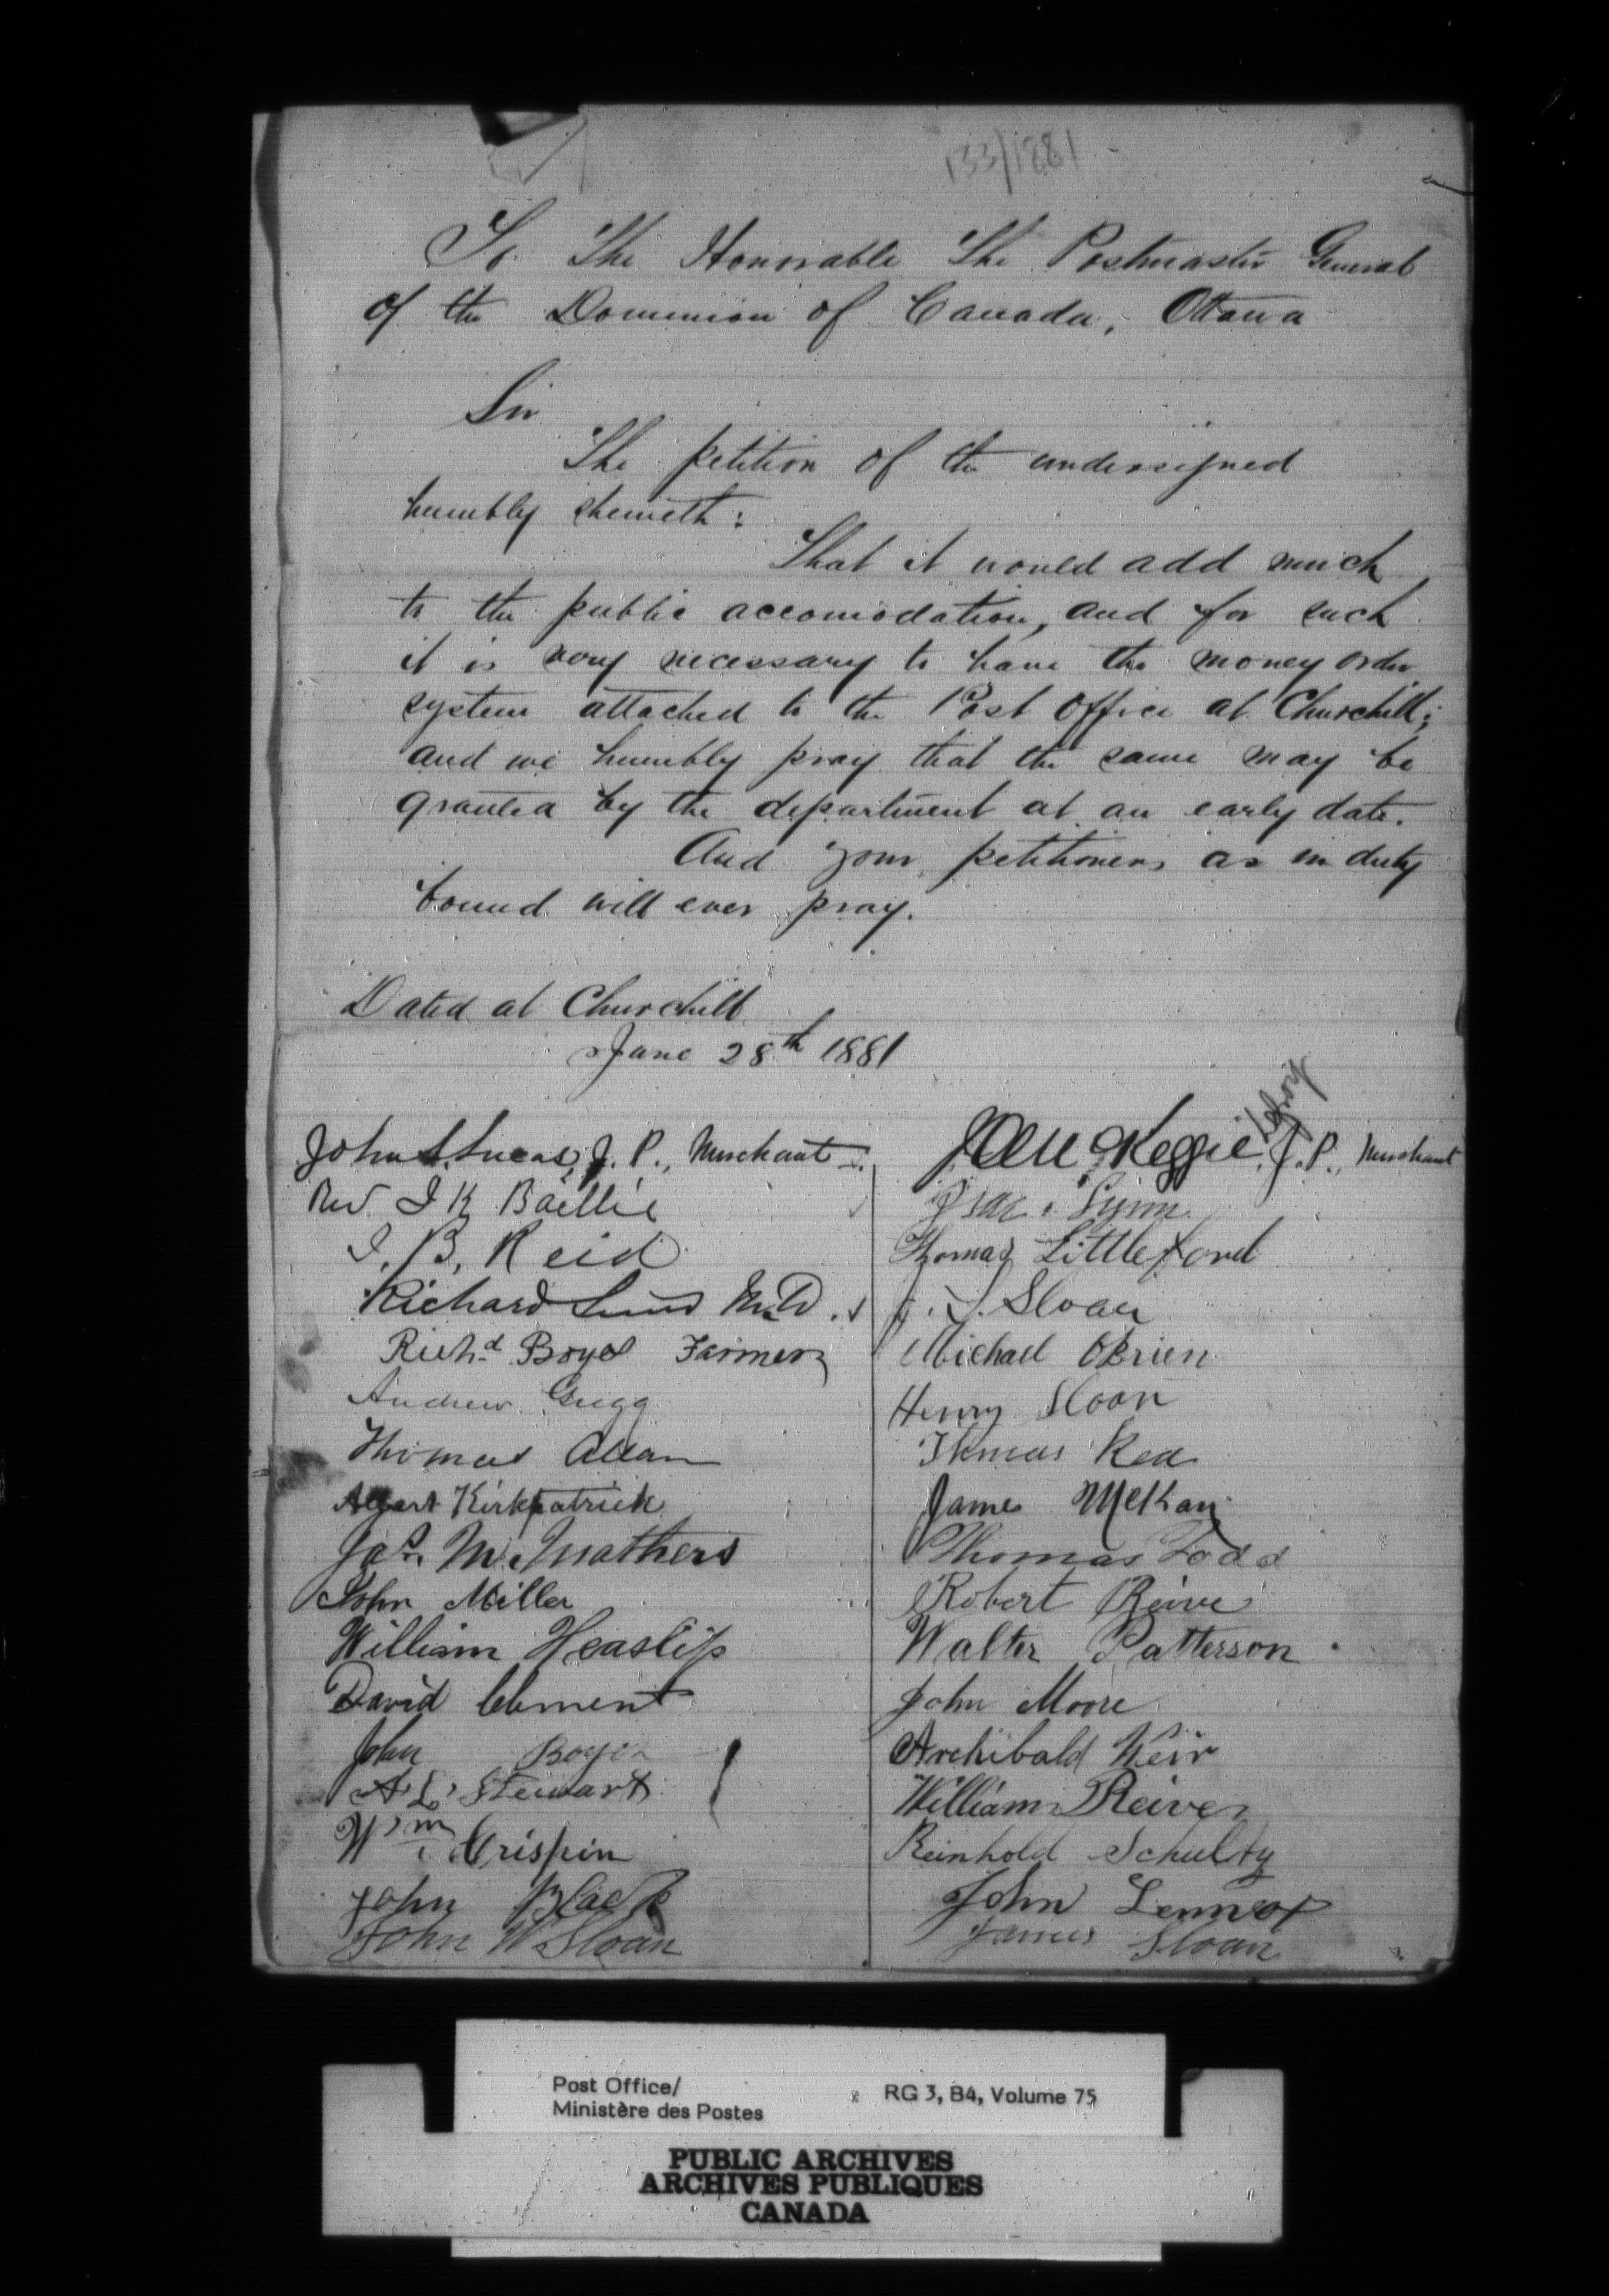 133/1881
To The Honorable The Postmaster General
of the Dominion of Canada, Ottawa
Sir
The petition of the undersigned
humbly sheweth:
That it would add much
to the public accomodation, and for such
it is very necessary to have the money order
system attached to the Post Office at Churchill;
and we humbly pray that the same may be
granted by the department at an early date.
And your petitioners as in duty
bound will ever pray.
Dated at Churchill
June 28th 1881
John L. Lucas, J. P., Merchant
Rev. J K Baillie
J. B. Reid
Richard M.D.
Richd Boyes Farmer
Andrew Gregg
Thomas Allan
Kirkpatrick
Jas. McMathers
John Miller
William Heaslip
David Clement
John Boyes
A L Stewart
Wm Crispin
John Black
John W Sloan
Lefroy
J.P., Merchant
Isac Synn
Thomas Littleford
J. J. Sloan
Michael OBrien
Henry Sloan
Thomas Rea
James McKay
Thomas Todd
Robert Reive
Walter Patterson
John Moore
Archibald Weir
William Reive
Reinhold Schultz
John Lennox
James Sloan
Post Office/
Ministère des Postes
RG 3, B4, Volume 75
PUBLIC ARCHIVES
ARCHIVES PUBLIQUES
CANADA